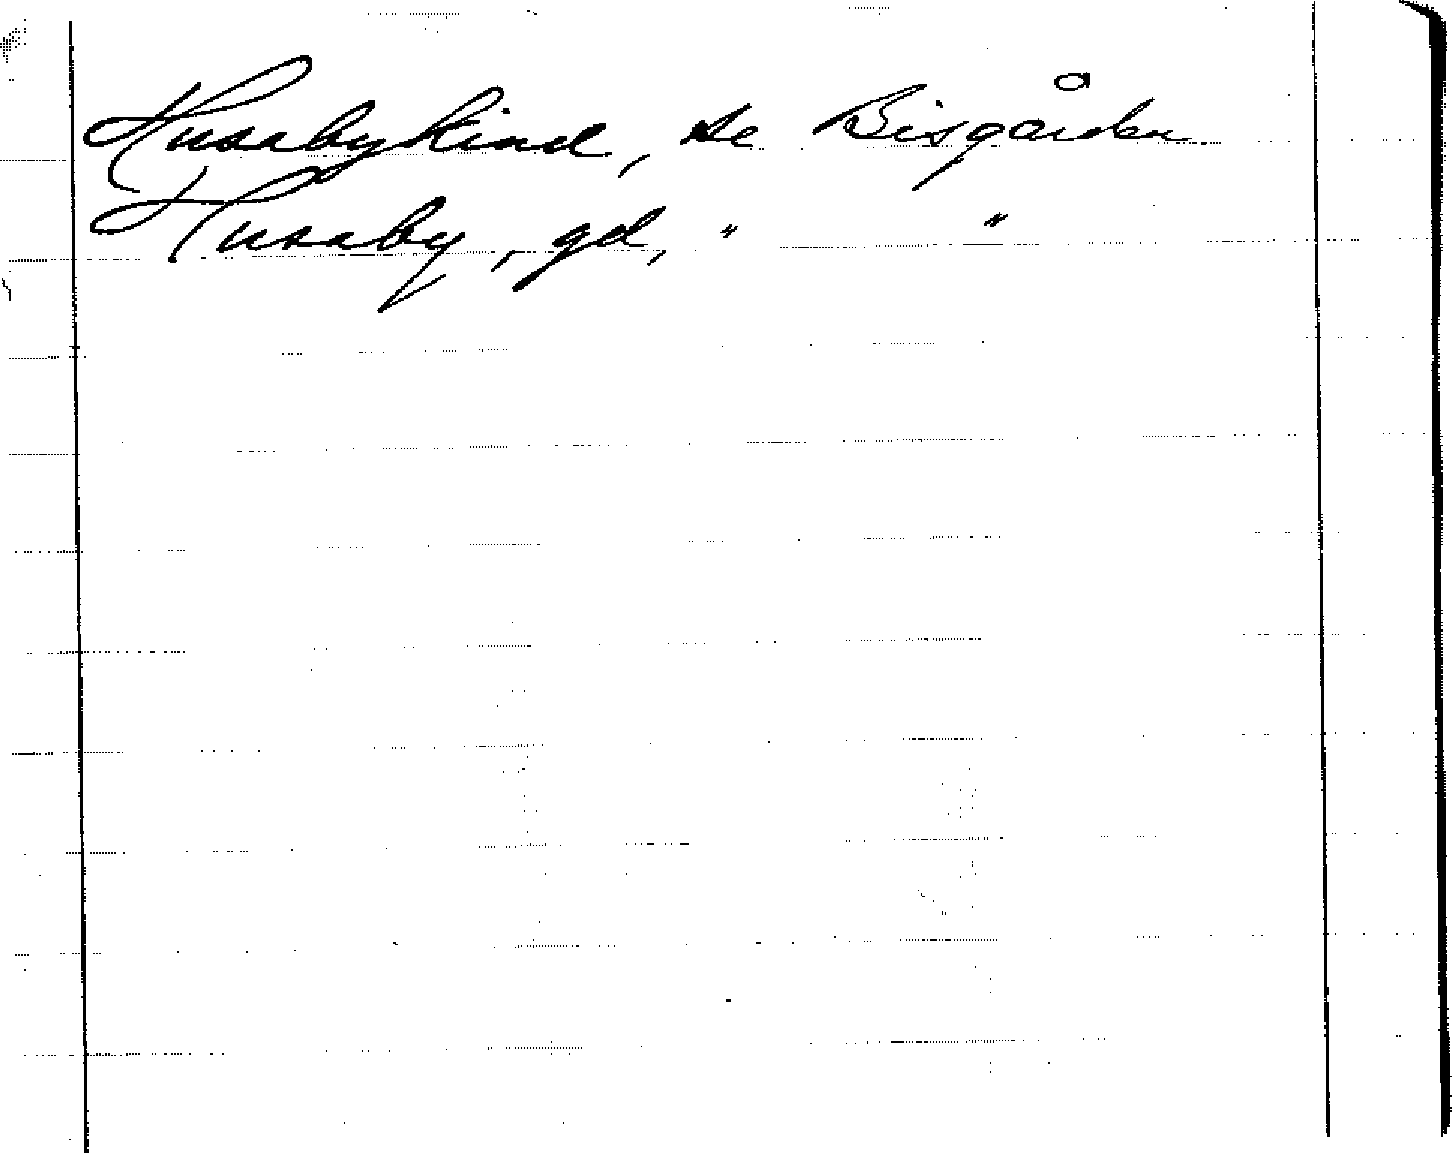 Husabykind, se Bisgården
Husaby, gd, " "